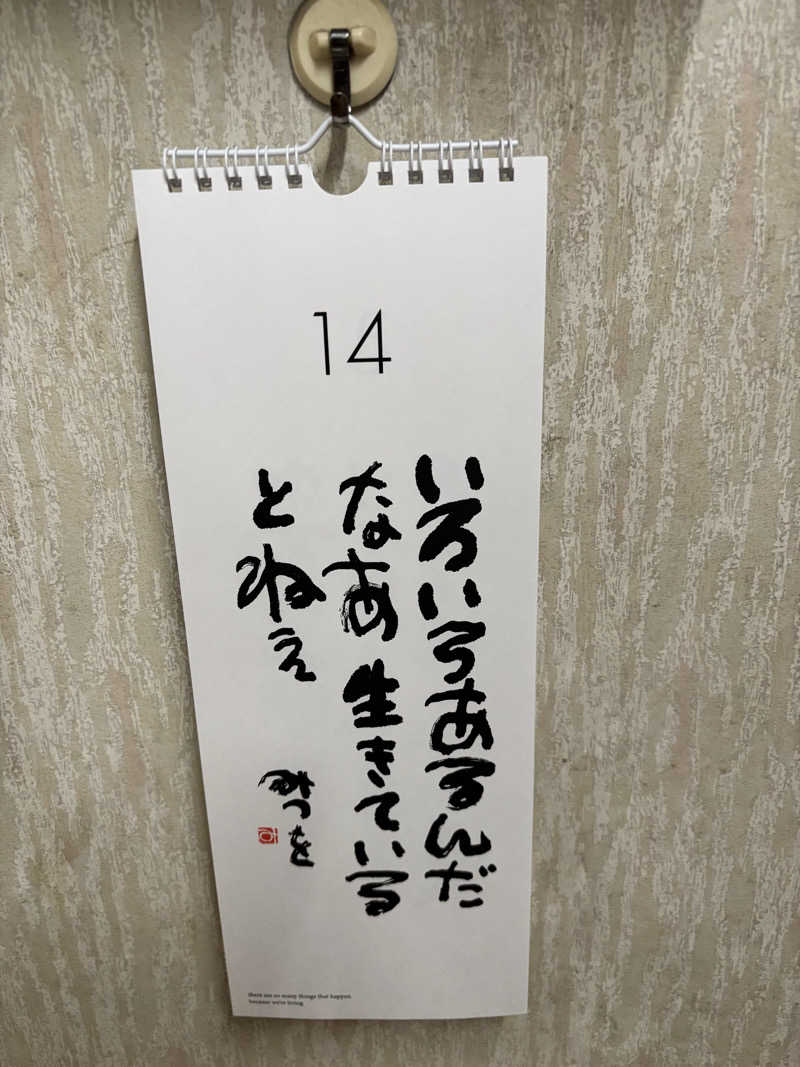 14
いろいろあるんだ
なあ生きている
とねえ
みつを
there are so many things that happen
because we're living